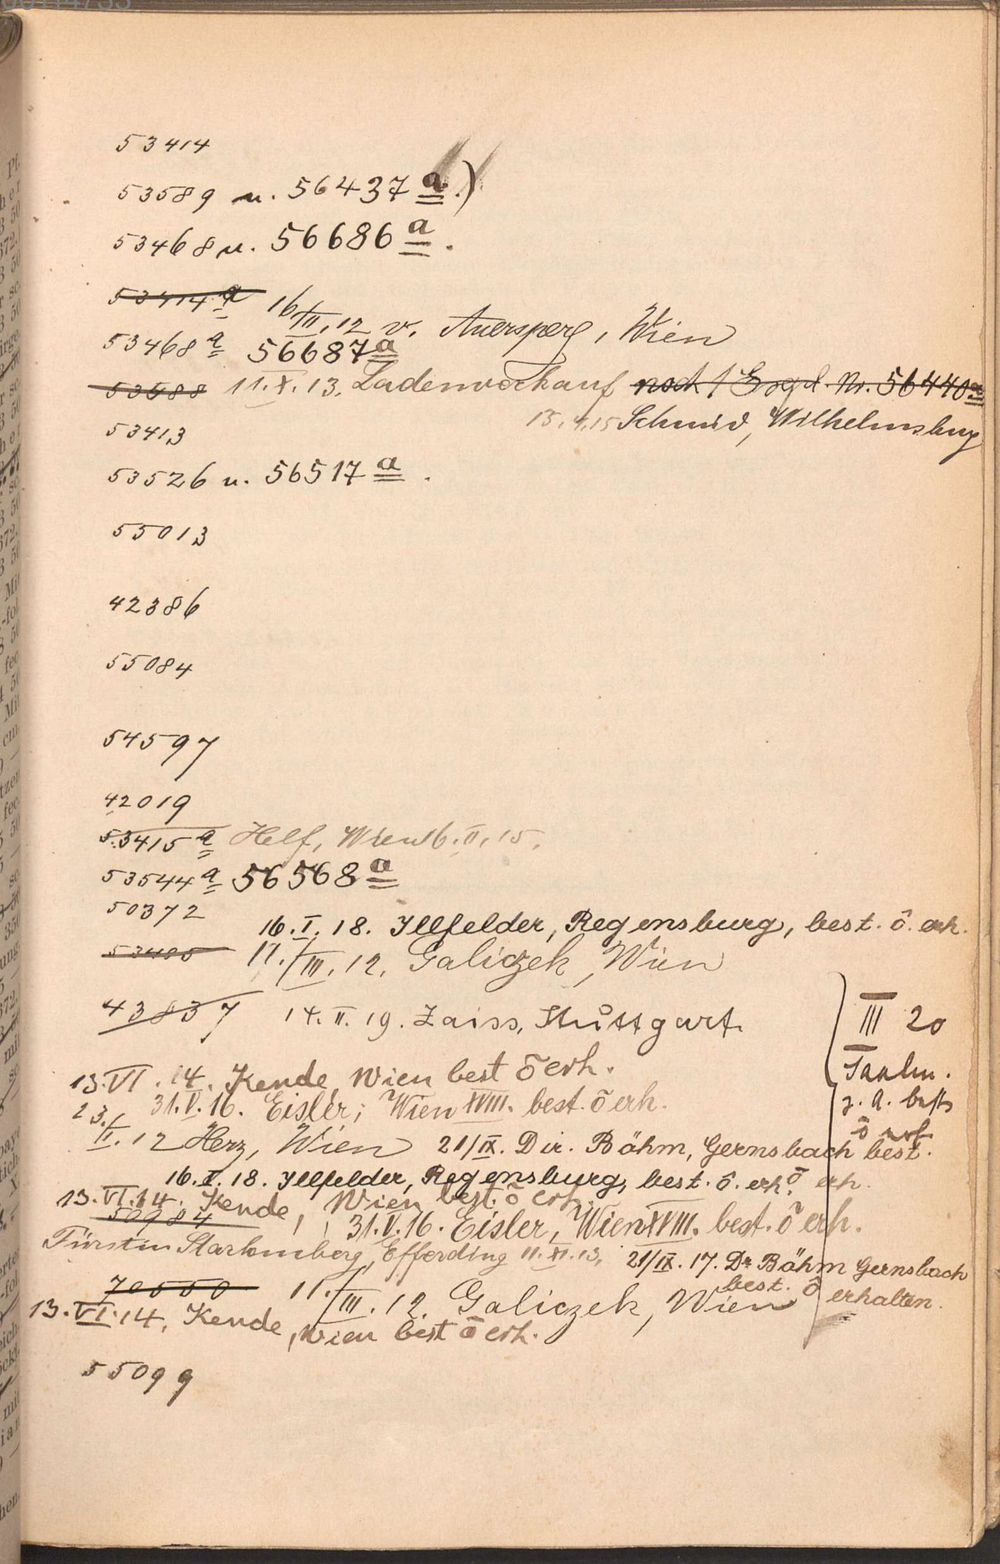 53414
53589 u. 56437 a.)
53468 u. 56686 a.
53414 a 16/III.12 v. Auersperg, Wien
53468 a 56687 a
53588 11.X.13. Ladenverkauf noch 1 Expl. Nr. 56440 a
53413 13.4.15 Schmid, Wilhelmsburg
53526 u. 56517 a.
55013
42386
55084
54597
42019
53415 a Helf, Wien 16.II.15.
53544 a 56568 a
50372
16.I.18. Illfelder, Regensburg, best. ō. erh.
53405 11./III.12. Galiczek, Wien
43837 14.II.19. Zaiss, Stuttgart.
III 20
13.VI.14. Kende, Wien best ō erh.
23./II.12 Herz, Wien
31.V.16. Eisler, Wien XVIII. best. ō erh.
z. A. best
21/IX. Dir. Böhm, Gernsbach best.
ō erh.
16.I.18. Illfelder, Regensburg, best. ō. erh.
13.VI.14. Kende, Wien best. ō erh.
50984 31.V.16. Eisler, Wien XVIII. best. ō erh.
Fürstin Starhemberg, Efferding 11.XI.13. 21/IX.17. Dr Böhm Gernsbach
best. ō erhalten.
70550 11./III.12. Galiczek, Wien
13.VI.14. Kende, Wien best ō erh.
55099